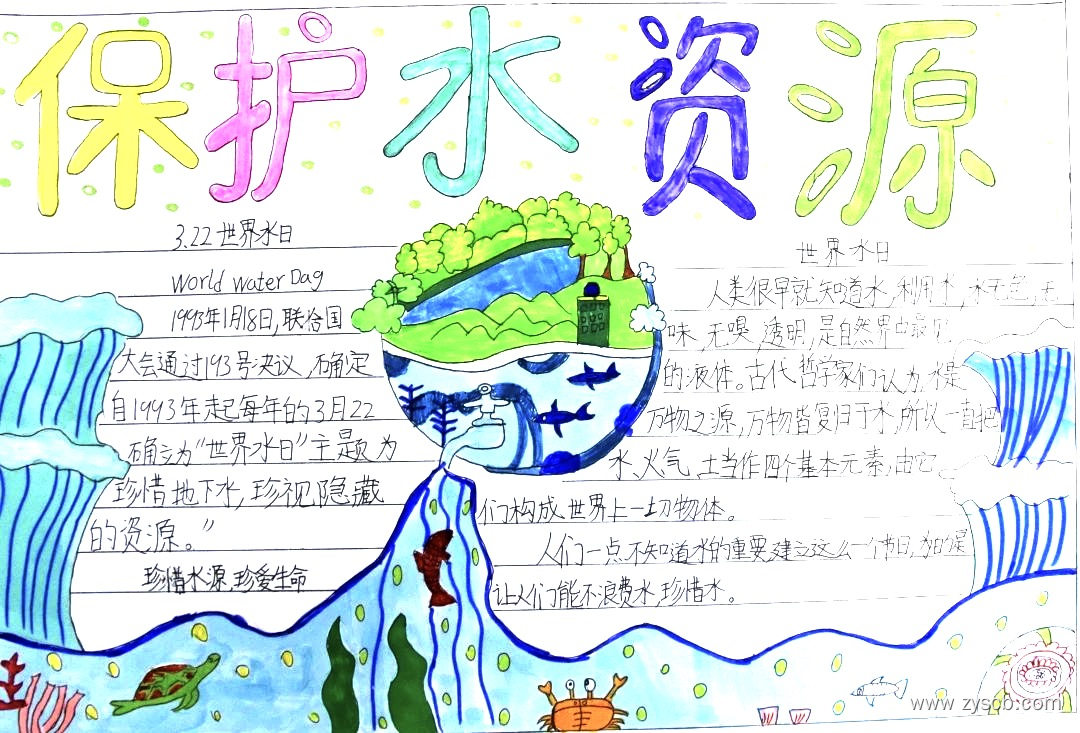 保护水资源
3.22世界水日
World water Day
1993年1月18日,联合国
大会通过193号决议,确定
自1993年起每年的3月22
确立为“世界水日”主题为
珍惜地下水,珍视隐藏
的资源。”
珍惜水源,珍爱生命
世界水日
人类很早就知道水,利用水,水无色,无
味,无嗅,透明,是自然界中最常
的液体。古代哲学家们认为,水是
万物之源,万物皆复归于水,所以一直把
水、火、气、土当作四个基本元素,由它
们构成世界上一切物体。
人们一点不知道水的重要,建立这么一个节日,为的是
让人们能不浪费水,珍惜水。
www.zyscb.com